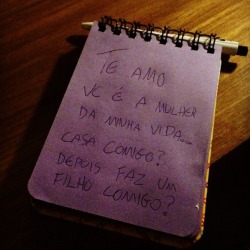 TE AMO
VC É A MULHER
DA MINHA VIDA...
CASA COMIGO?
DEPOIS FAZ UM
FILHO COMIGO?